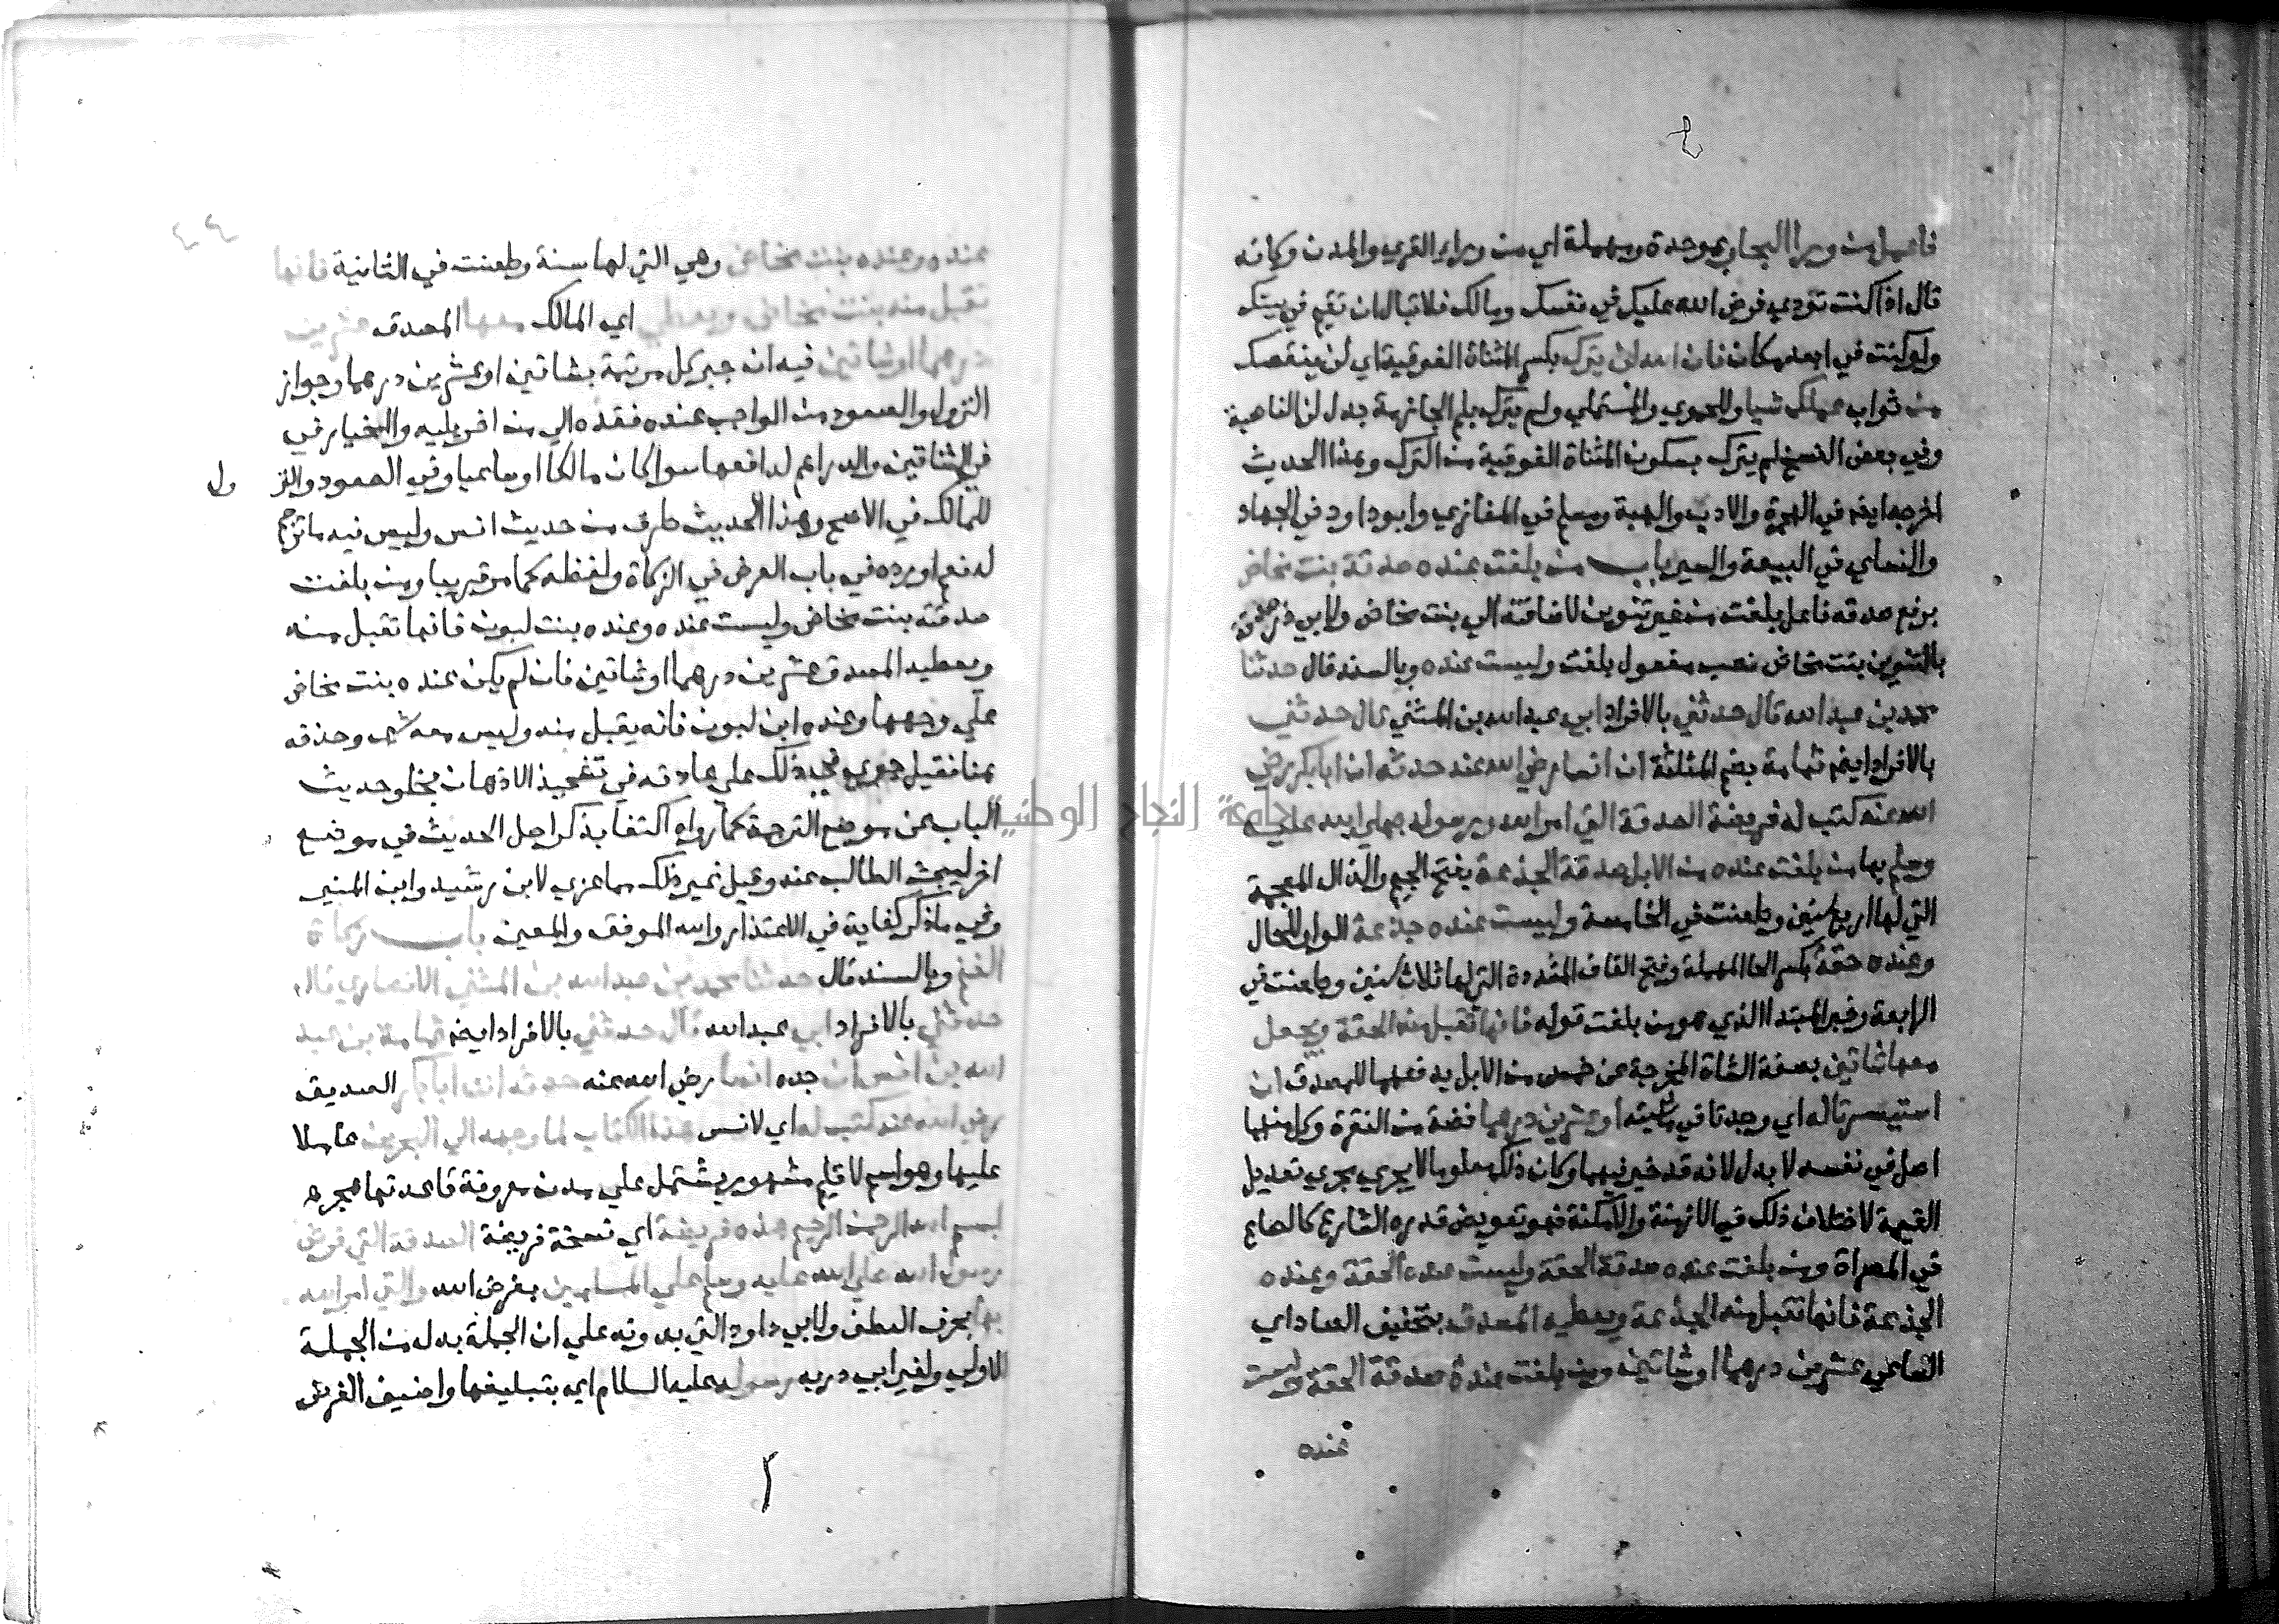 فاعمل من ورا البحار بموحدة ومهملة اي من وراء القري والمدن وكانه
قال اذا كنت تؤدي فرض الله عليك في نفسك ومالك فلا تبال ان تقيم في بيتك
ولو كنت في ابعد مكان فان الله لن يترك بكسر المثناة الفوقية اي لن ينقصك
من ثواب عملك شيا وللحموي والمستملي ولم يترك بلم الجازمة بدل لن الناصبة
وفي بعض النسخ لم يترك بسكون المثناة الفوقية من الترك وهذا الحديث
اخرجه ايضا في الهجرة والادب والهبة ومسلم في المغازي وابو داود في الجهاد
والنساي في البيعة والسير باب من بلغت عنده صدقة بنت مخاض
برفع صدقه فاعل بلغت من غير تنوين لاضافته الي بنت مخاض ولابي ذر صدقة
بالتنوين بنت مخاض نصب مفعول بلغت وليست عنده وبالسند قال حدثنا
محمد بن عبد الله قال حدثني بالافراد ابي عبد الله بن المثني قال حدثني
بالافراد ايضا ثمامة بضم المثلثة ان انسا رضي الله عنه حدثه ان ابا بكر رضي
الله عنه كتب له فريضة الصدقة التي امر الله ورسوله صلي الله عليه
وسلم بها من بلغت عنده من الابل صدقة الجذعة بفتح الجيم والذال المعجمة
التي لها اربع سنين وطعنت في الخامسة وليست عنده جذعة الواو للحال
وعنده حقة بكسر الحا المهملة وفتح القاف المشددة التي لها ثلاث سنين وطعنت في
الرابعة وخبر المبتدا الذي هو من بلغت قوله فانها تقبل منه الحقة ويجعل
معها شاتين بصفة الشاة المخرجة عن خمس من الابل يدفعها للمصدق ان
استيسرتا له اي وجدتا في ماشيته او عشرين درهما فضة من النقرة وكل منهما
اصل في نفسه لا بدل لانه قد خير فيهما وكان ذلك معلوما لا يجري مجري تعديل
القيمة لاختلاف ذلك في الازمنة والامكنة فهو تعويض قدره الشارع كالصاع
في المصراة ومن بلغت عنده صدقة الحقة وليست عنده الحقة وعنده
الجذعة فانها تقبل منه الجذعة ويعطيه المصدق بتخفيف الصاد اي
الساعي عشرين درهما او شاتين ومن بلغت عنده صدقة الحقة وليست
عنده
عنده وعنده بنت مخاض وهي التي لها سنة وطعنت في الثانية فانها
تقبل منه بنت مخاض ويعطي اي المالك معها المصدق عشرين
درهما او شاتين فيه ان جبر كل مرتبة بشاتين او عشرين درهما وجواز
النزول والصعود من الواجب عند فقده الي من اخر يليه والخيار في
في الشاتين والدراهم لدافعها سوا كان مالكا او ساعيا وفي الصعود والنزول
للمالك في الاصح وهذا الحديث طرف من حديث انس وليس فيه ما ترجم
له نعم اورده في باب العرض في الزكاة ولفظه كما مر قريبا ومن بلغت
صدقته بنت مخاض وليست عنده وعنده بنت لبون فانها تقبل منه
ويعطيه المصدق عشرين درهما او شاتين فان لم يكن عنده بنت مخاض
علي وجهها وعنده ابن لبون فانه يقبل منه وليس معه شي وحذفه
هنا فقيل جري في ذلك علي عادته في تشحيذ الاذهان بخلو حديث
الباب عن موضع الترجمة كما رواه اكتفا بذكر اصل الحديث في موضع
اخر ليبحث الطالب عنه وقيل غير ذلك مما عزي لابن رشيد وابن المنير
وفي ما ذكر كفاية في الاعتذار والله الموفق والمعين باب زكاة
الغنم وبالسند قال حدثنا محمد بن عبد الله بن المثني الانصاري قال
حدثني بالافراد ابي عبد الله قال حدثني بالافراد ايضا ثمامة بن عبد
الله بن انس ان جده انسا رضي الله عنه حدثه ان ابا بكر الصديق
رضي الله عنه كتب له اي لانس هذا الكتاب لما وجهه الي البحرين عاملا
عليها وهو اسم لاقليم مشهور يشتمل علي مدن معروفة قاعدتها هجر
بسم الله الرحمن الرحيم هذه فريضة اي نسخة فريضة الصدقة التي فرض
رسول الله صلي الله عليه وسلم علي المسلمين بفرض الله والتي امر الله
بها بحرف العطف ولابي داود التي بدونه علي ان الجملة بدل من الجملة
الاولي ولغير ابي ذر به رسوله عليه السلام اي بتبليغها واضيف الفرض